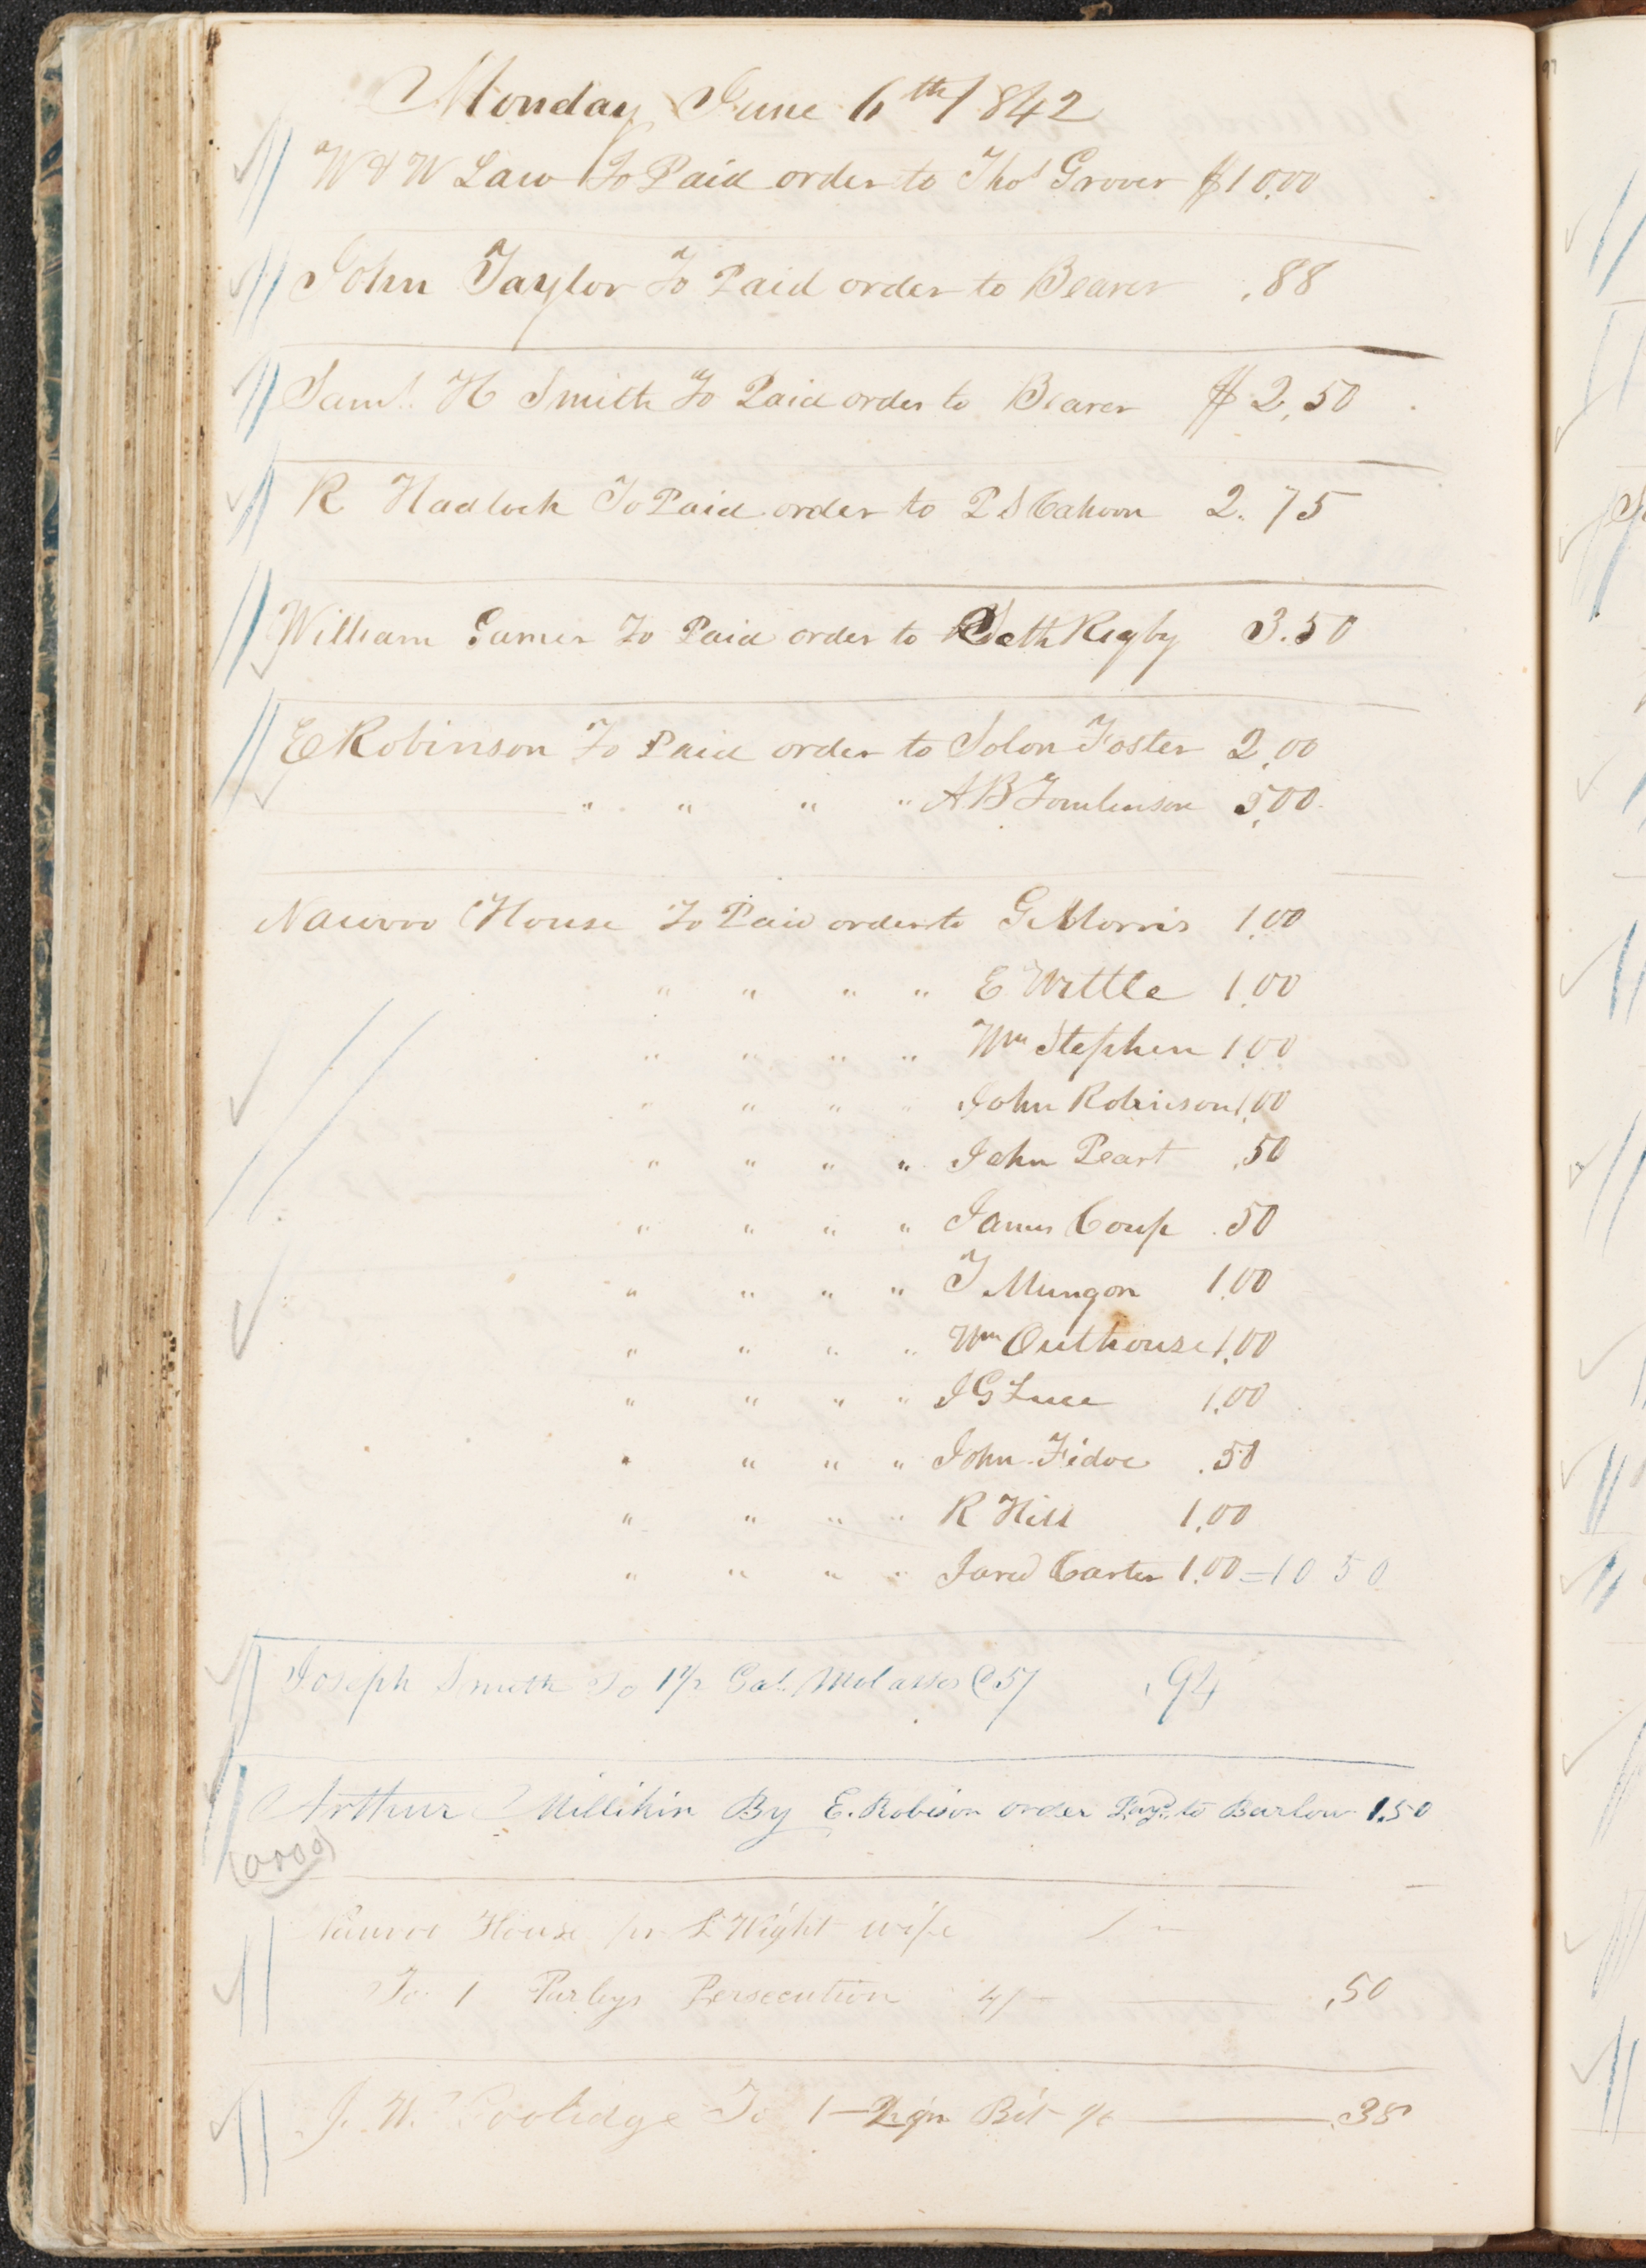 Monday June 6th 1842
W & W Law To Paid order to Thos Grover $10.00
John Taylor To Paid order to Bearer .88
Saml. H Smith To Paid order to Bearer $2,50
R Hadlock To Paid order to P S Cahoon 2.75
William Gamer To Paid order to Seth Rigby 3.50
E Robinson To Paid order to Solon Foster 2.00
" " " " A B Tomlinson 5.00
Nauvoo House To Paid order to G Morris 1.00
" " " " E Wittle 1.00
" " " " Wm Stephen 1.00
" " " " John Robinson 1.00
" " " " John Peart .50
" " " " James Coup .50
" " " " T Mungon 1.00
" " " " Wm Outhouse 1.00
" " " " J G Luce 1.00
" " " " John Fidoe .50
" " " " R Hill 1.00
" " " " Jared Carter 1.00 = 10 50
Joseph Smith To 1 1/2 Gal. Molasses @ 5/ .94
Arthur Millikin By E. Robison order Payd. to Barlow 1.50
Nauvoo House pr L Wight wife
To 1 Parleys Persecution 4/- .50
J. W. Coolidge To 1 Bit .38